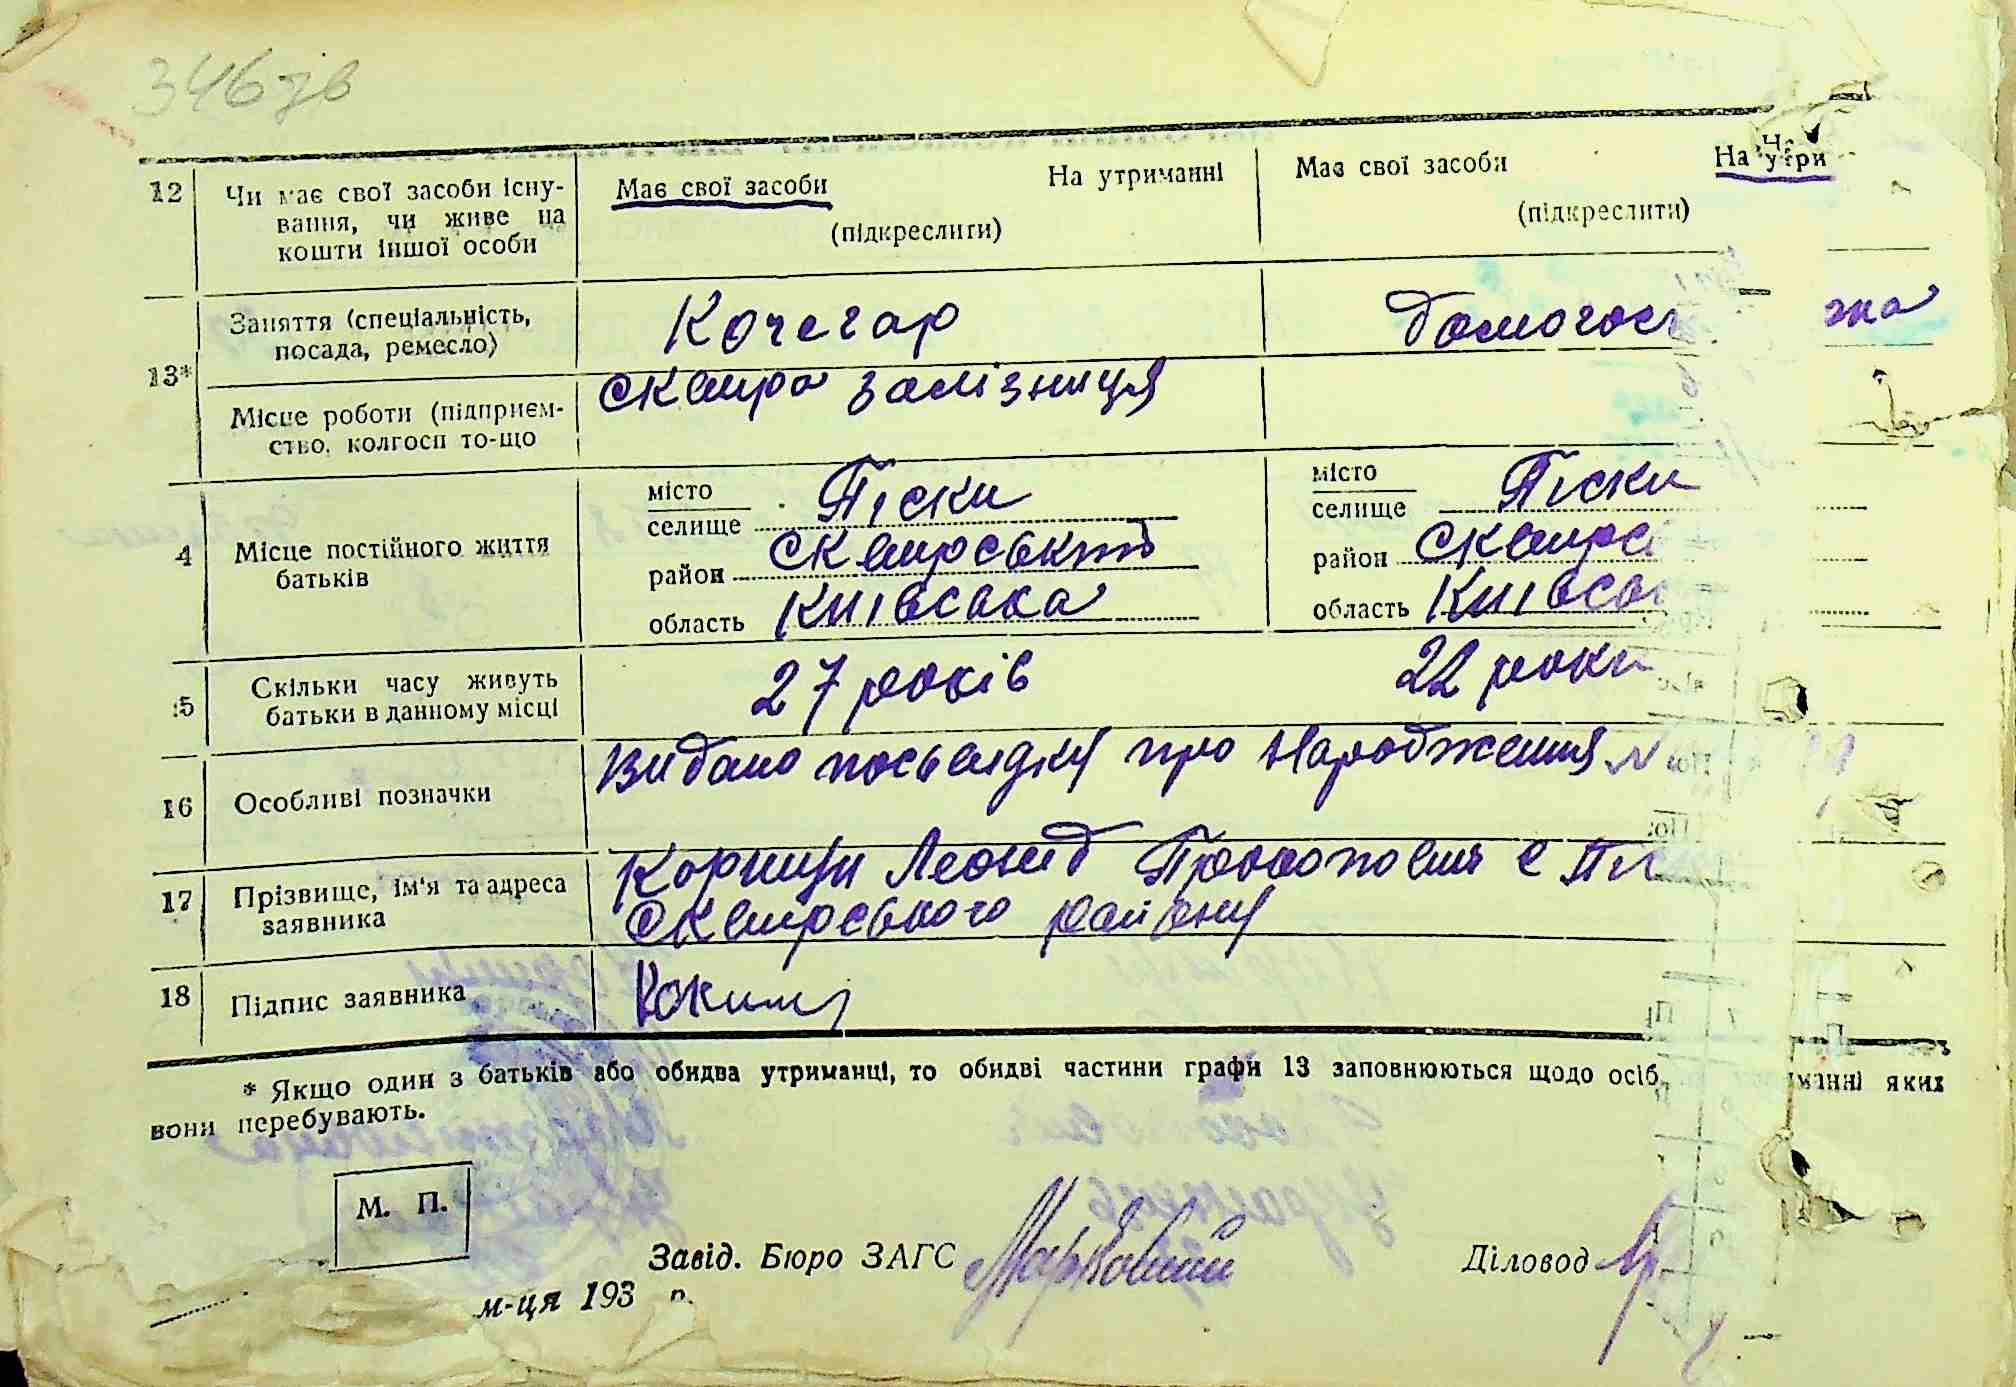 346 зв
12 Чи має свої засоби існу- Має свої засоби На утриманні Має свої засоби На утри
вання, чи живе на (підкреслити) (підкреслити)
кошти іншої особи
13* Заняття (спеціальність, Кочегар домогос жка
посада, ремесло)
Місце роботи (підприєм- Сквира залізниця
ство, колгосп то-що
4 Місце постійного життя батьків
місто Піски місто Піски
селище селище
район Сквирський район Сквирс
область Київська область Київсь
5 Скільки часу живуть 27 років 22 роки
батьки в данному місці
16 Особливі позначки Видано посвидку про Народження №
17 Прізвище, ім'я та адреса Леонид с Пі
заявника Сквирського району
18 Підпис заявника
* Якщо один з батьків або обидва утриманці, то обидві частини графи 13 заповнюються щодо осіб, манні яких
вони перебувають.
М. П.
Завід. Бюро ЗАГС Діловод
м-ця 193 р.